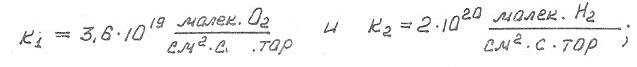 к₁ = 3,6·10¹⁹ малек. O₂ / см²·с. .тор и к₂ = 2·10²⁰ малек. H₂ / см²·с·тор ;